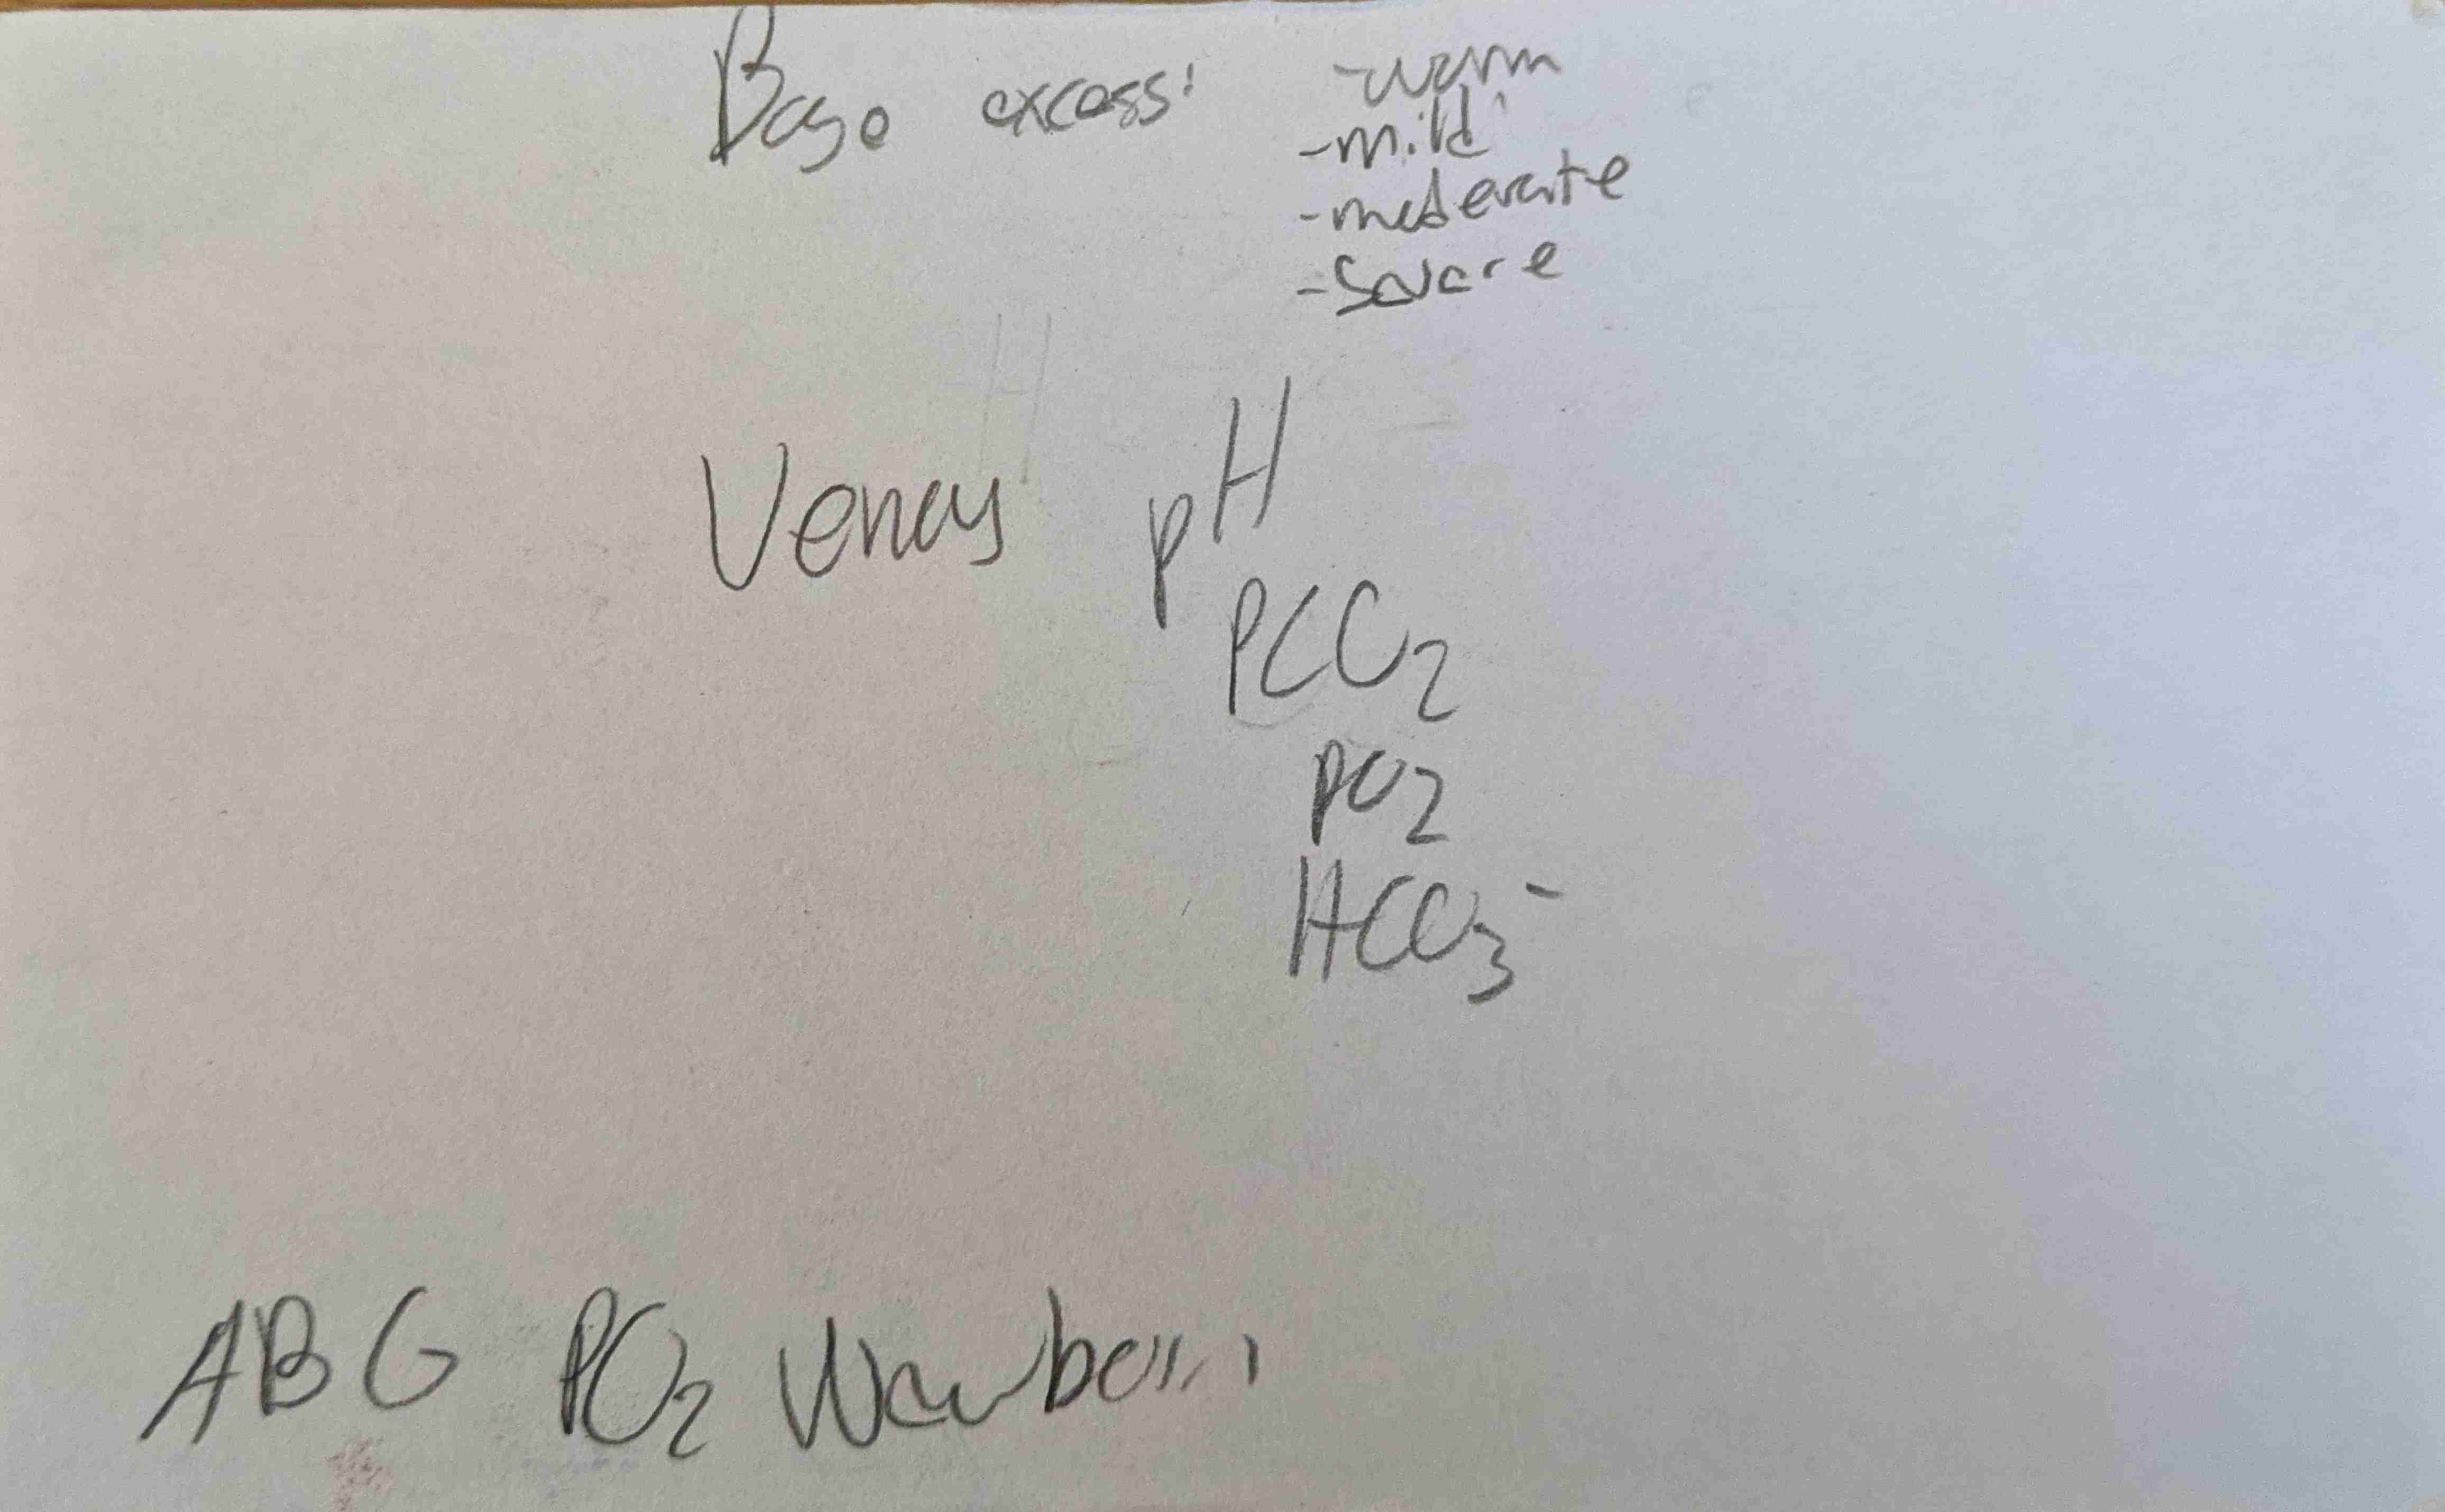 Base excess:
-norm
-mild
-moderate
-Severe
Venous pH
PCO₂
PO₂
HCO₃⁻
ABG PO₂ Newborn